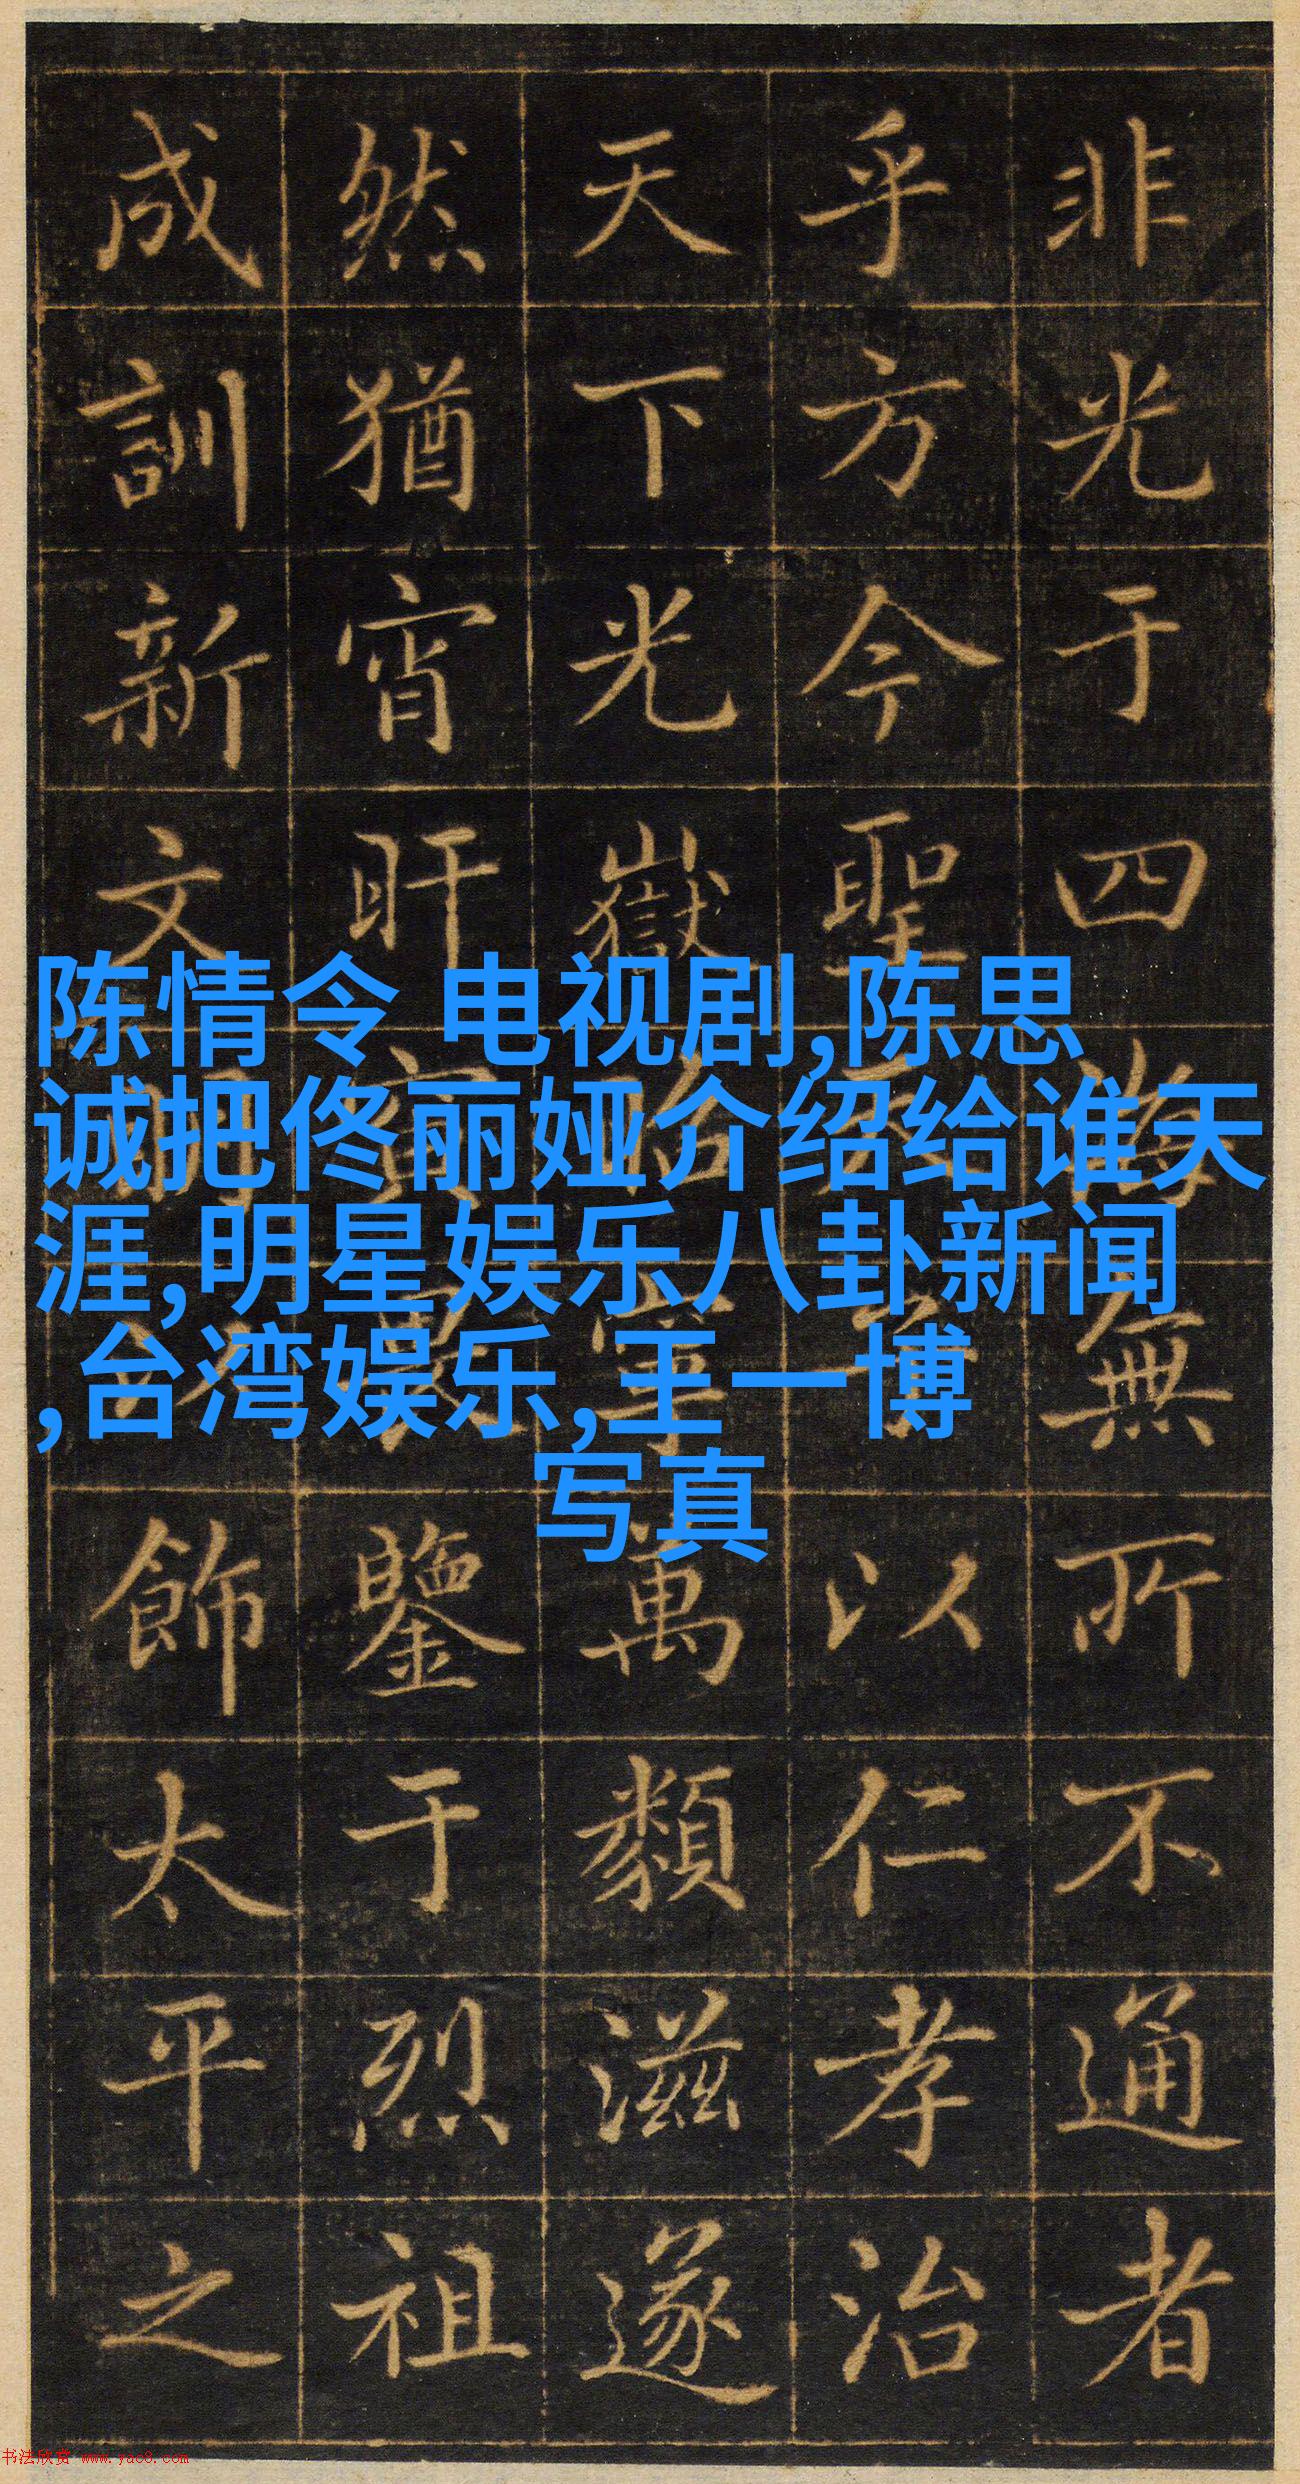 非光于四海無所不通者
乎方今聖以仁孝治
天下光嶽寧萬類滋遂
然猶宵旰寅鑒于烈祖
成訓新文明飾太平之
陈情令 电视剧,陈思
诚把佟丽娅介绍给谁天
涯,明星娱乐八卦新闻
,台湾娱乐,王一博
写真
书法欣赏 www.yac8.com